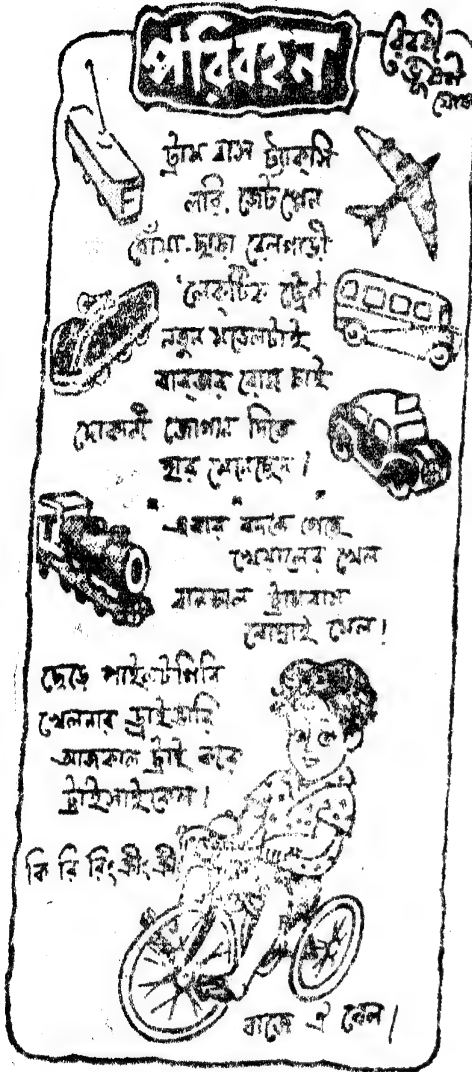 পরিবহন
রেবতী
ভূষণ
ঘোষ
ট্রাম বাস ট্যাক্‌সি
লরি, জেটপ্লেন
ধোঁয়া-ছাড়া রেলগাড়ী
'লেক্‌ট্রিক ট্রেন
নতুন মডেলটাই
বাবুর রোজ চাই
দোকানী জোগান দিতে
হার মেনেছেন।
এবার বদলে গেছে
খেয়ালের খেল
বানচাল ট্রামবাস
বোম্বাই মেল!
ছেড়ে পাইলটগিরি
খেলনার ড্রাইভারি
আজকাল ট্রাই করে
ট্রাইসাইকেল।
কি রি রিং ক্রীং ক্রী
বাজে ঐ বেল।